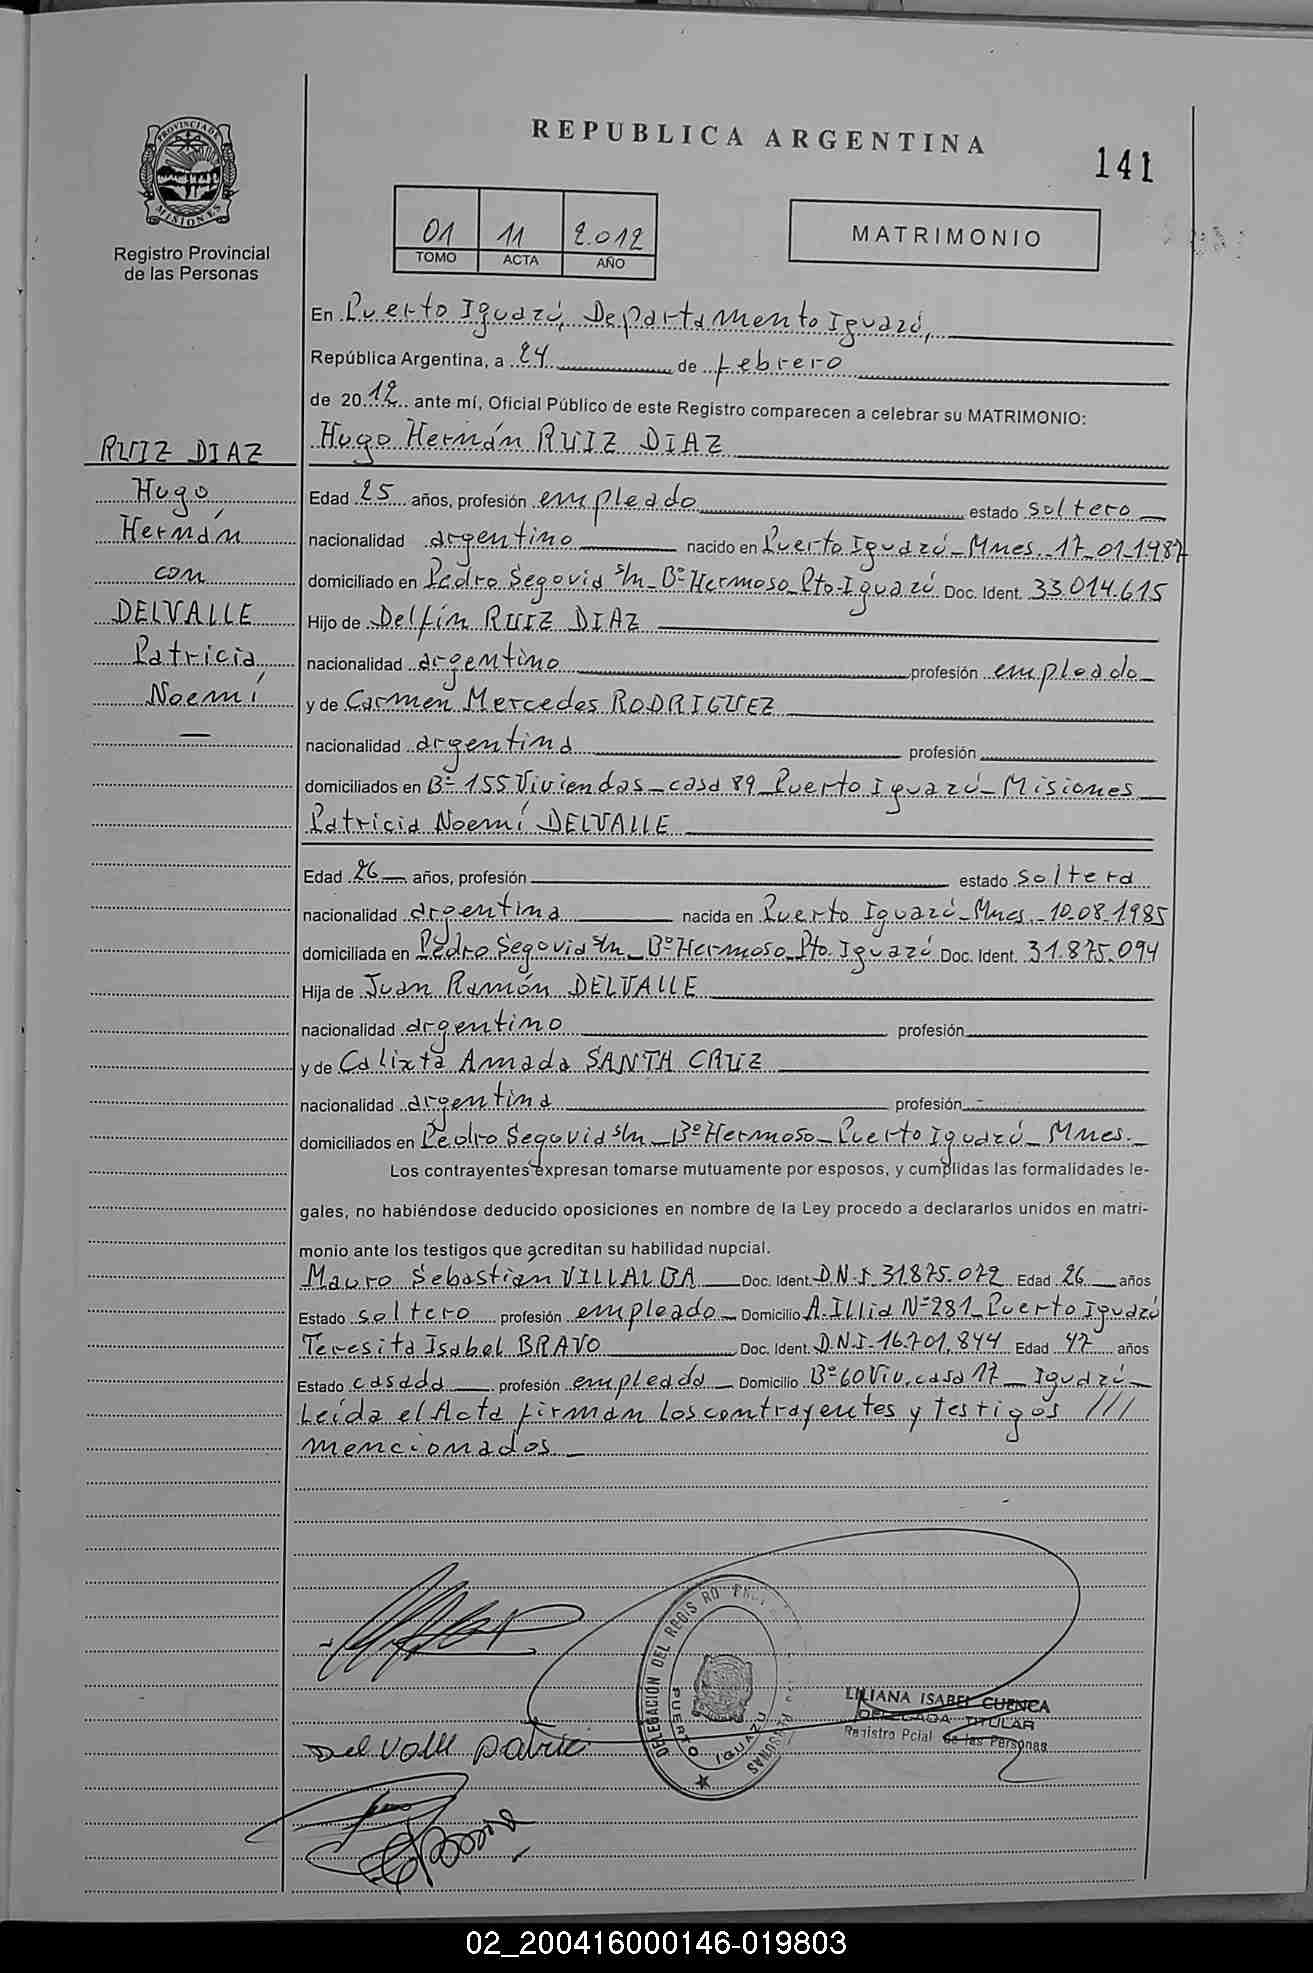 REPUBLICA ARGENTINA
141
PROVINCIA DE
MISIONES
Registro Provincial
de las Personas
01 11 2.012
TOMO ACTA AÑO
MATRIMONIO
En Puerto Iguazú, Departamento Iguazú,
República Argentina, a 24 de febrero
de 2012 ante mí, Oficial Público de este Registro comparecen a celebrar su MATRIMONIO:
RUIZ DIAZ
Hugo
Hernán
con
DELVALLE
Patricia
Noemí
Hugo Hernán RUIZ DIAZ
Edad 25 años, profesión empleado estado soltero
nacionalidad argentino nacido en Puerto Iguazú - Mnes. - 17-01-1987
domiciliado en Pedro Segovia s/n - B° Hermoso - Pto. Iguazú Doc. Ident. 33.014.615
Hijo de Delfín RUIZ DIAZ
nacionalidad argentino profesión empleado
y de Carmen Mercedes RODRIGUEZ
nacionalidad argentina profesión
domiciliados en B° 155 Viviendas - casa 89 - Puerto Iguazú - Misiones
Patricia Noemí DELVALLE
Edad 26 años, profesión estado soltera
nacionalidad argentina nacida en Puerto Iguazú - Mnes. - 10-08-1985
domiciliada en Pedro Segovia s/n - B° Hermoso - Pto. Iguazú Doc. Ident. 31.875.094
Hija de Juan Ramón DELVALLE
nacionalidad argentino profesión
y de Calixta Amada SANTA CRUZ
nacionalidad argentina profesión
domiciliados en Pedro Segovia s/n - B° Hermoso - Puerto Iguazú - Mnes.
Los contrayentes expresan tomarse mutuamente por esposos, y cumplidas las formalidades le-
gales, no habiéndose deducido oposiciones en nombre de la Ley procedo a declararlos unidos en matri-
monio ante los testigos que acreditan su habilidad nupcial.
Mauro Sebastián VILLALBA Doc. Ident. D.N.I. 31.875.072 Edad 26 años
Estado soltero profesión empleado Domicilio A. Illia N° 281 - Puerto Iguazú
Teresita Isabel BRAVO Doc. Ident. D.N.I. 16.701.844 Edad 47 años
Estado casada profesión empleada Domicilio B° 60 Viv. casa 17 - Iguazú
Leída el Acta firman los contrayentes y testigos ///
mencionados -
DELEGACIÓN DEL REGIS RO PERSONAS
PUERTO IGUAZU
LILIANA ISABEL CUENCA
DELEGADA TITULAR
Registro Pcial de las Personas
Del Valle
02_200416000146-019803